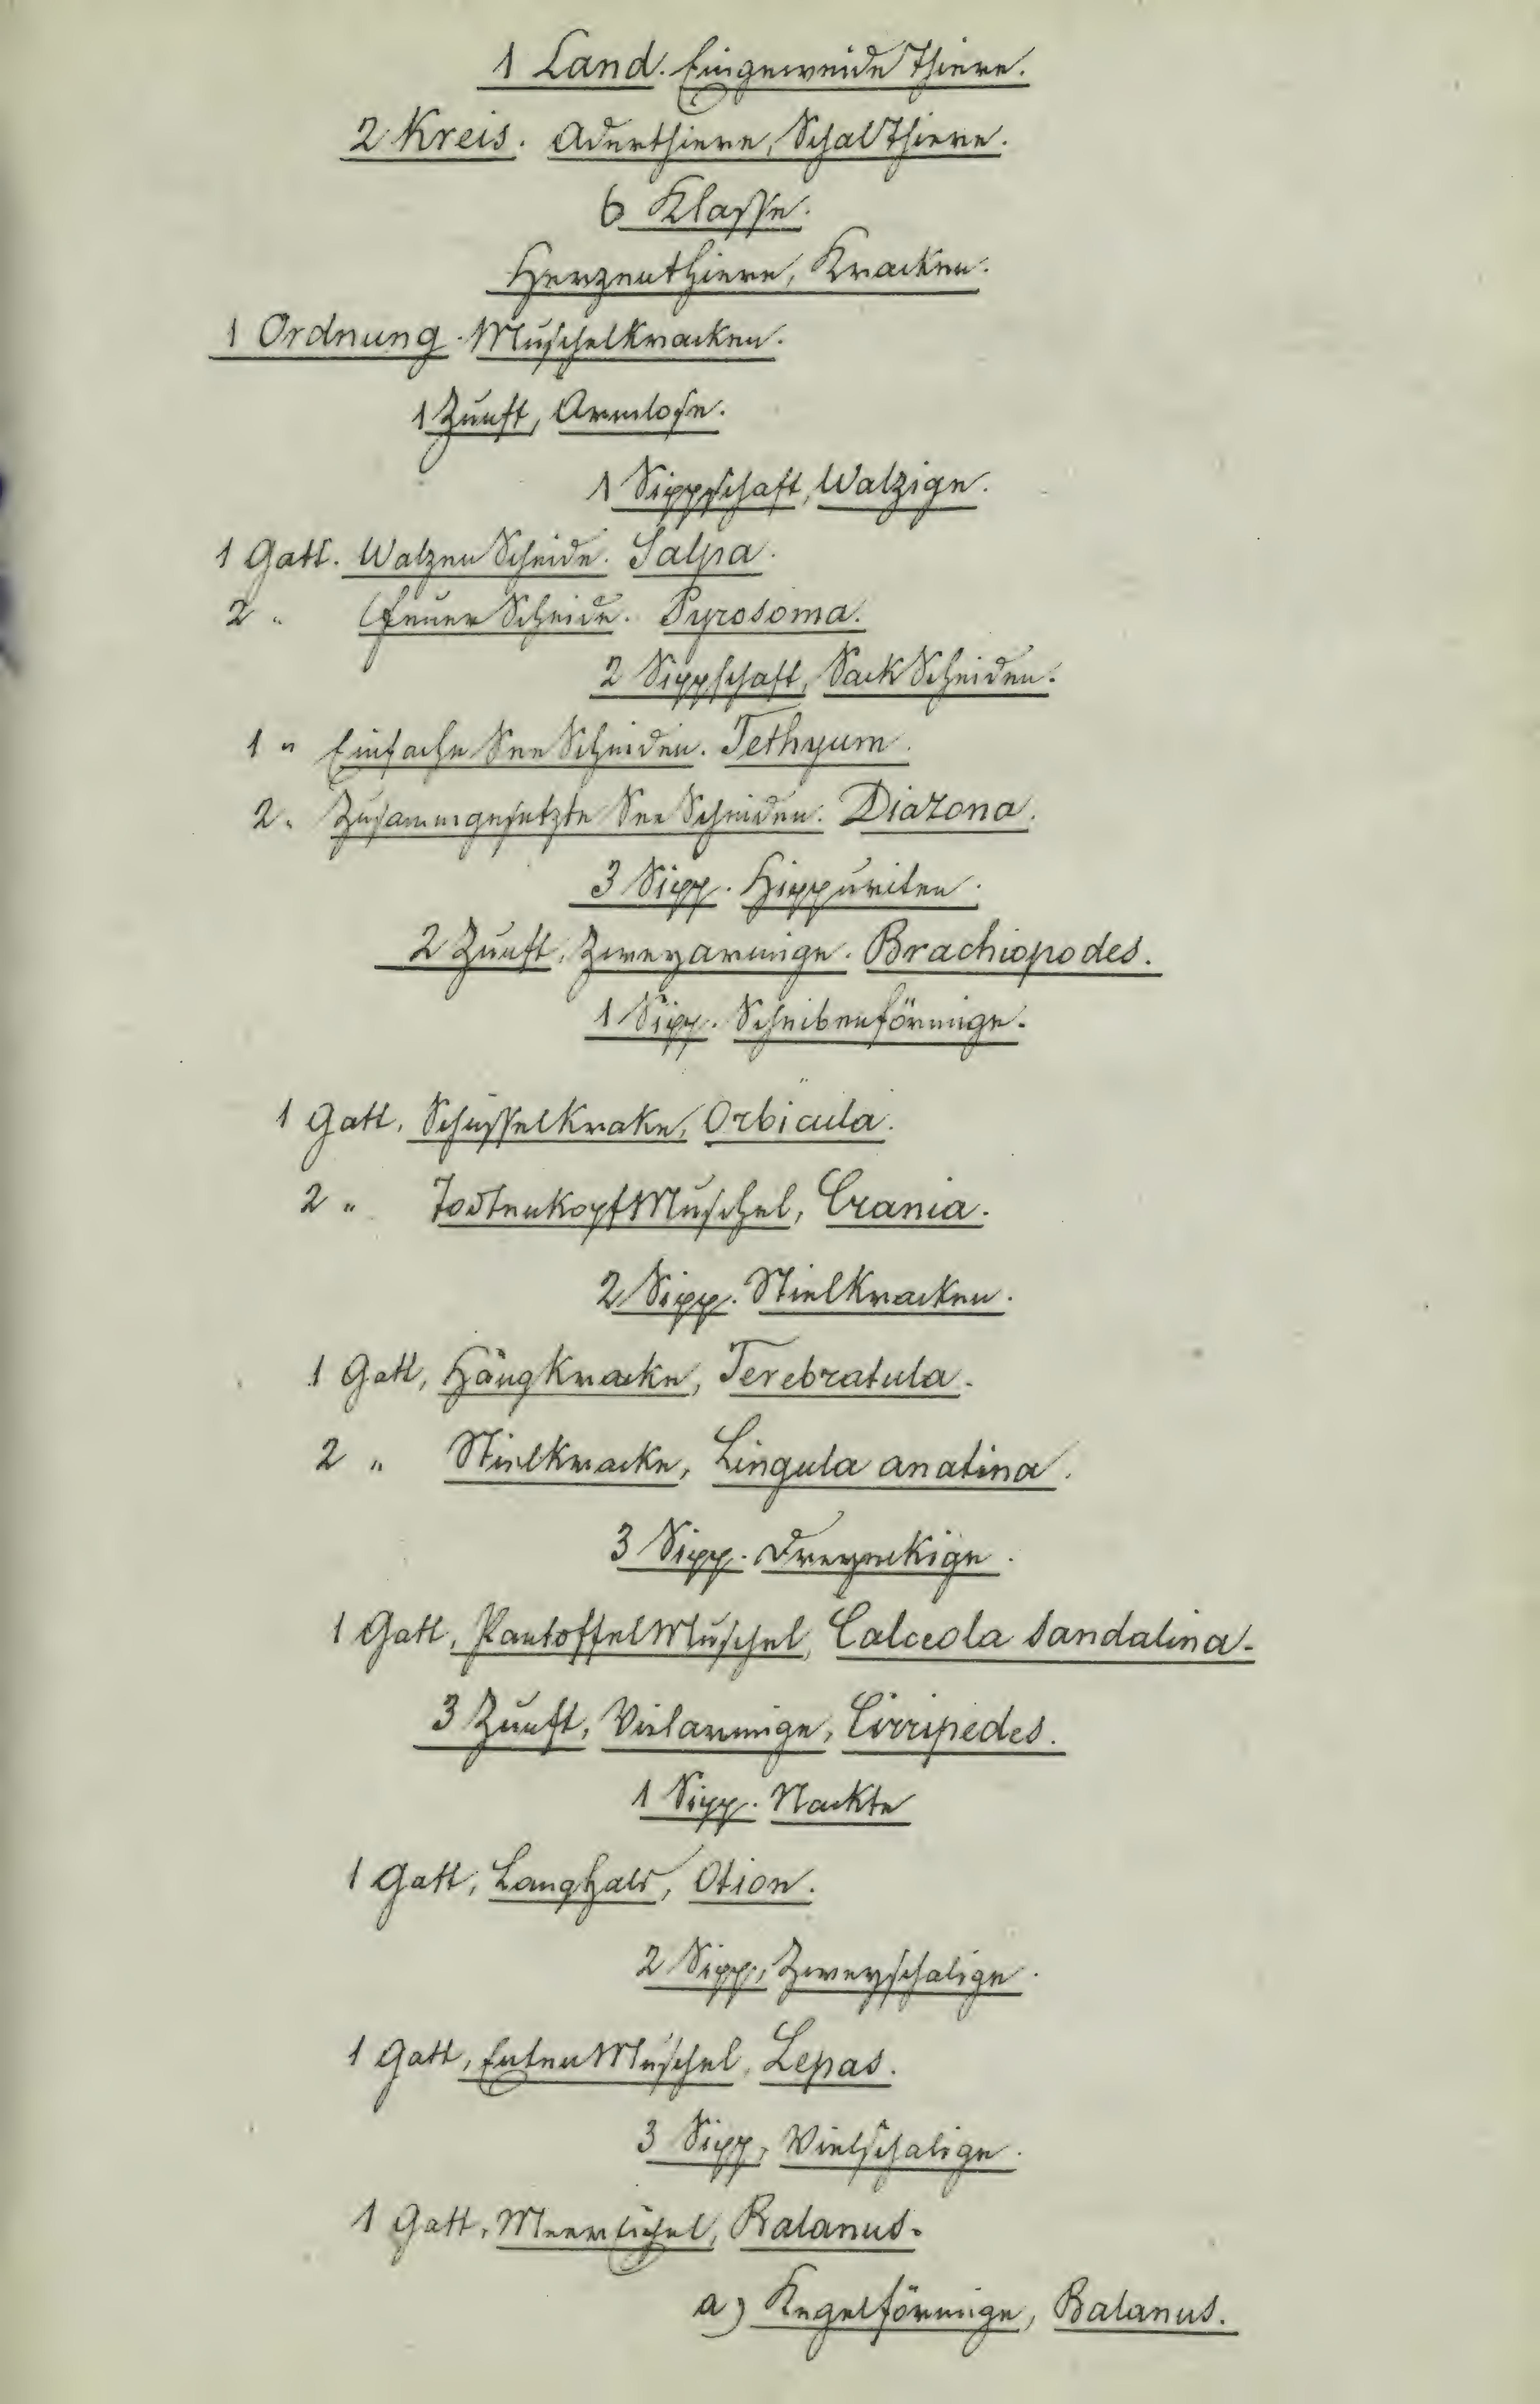 1 Land. Eingeweide Thiere.
2 Kreis. Aderthiere, Schalthiere.
6 Klasse.
Herzenthiere, Kracken.
1 Ordnung. Muschelkracken.
1 Zunft, Armlose.
1 Sippschaft, Walzige.
1 Gatt. Walzen Scheide. Salpa.
2 " Feuer Scheide. Pyrosoma.
2 Sippschaft, Sack Scheiden.
1 " Einfache See Scheiden. Tethyum.
2 " Zusammgesetzte See Scheiden. Diazona.
3 Sipp. Hippuriten.
2 Zunft, Zweyarmige. Brachiopodes.
1 Sipp. Scheibenförmige.
1 Gatt, Schüsselkrake, Orbicula.
2 " TodtenkopfMuschel, Crania.
2 Sipp. Stielkracken.
1 Gatt, Hängkracke, Terebratula.
2 " Stielkracke, Lingula anatina.
3 Sipp. Dreyeckige.
1 Gatt, PantoffelMuschel, Calceola sandalina.
3 Zunft, Vielarmige, Cirripedes.
1 Sipp. Nackte
1 Gatt, Langhals, Otion.
2 Sipp, Zweyschalige.
1 Gatt, EntenMuschel, Lepas.
3 Sipp, Vielschalige.
1 Gatt, MeerEichel, Balanus.
a) Kegelförmige, Balanus.